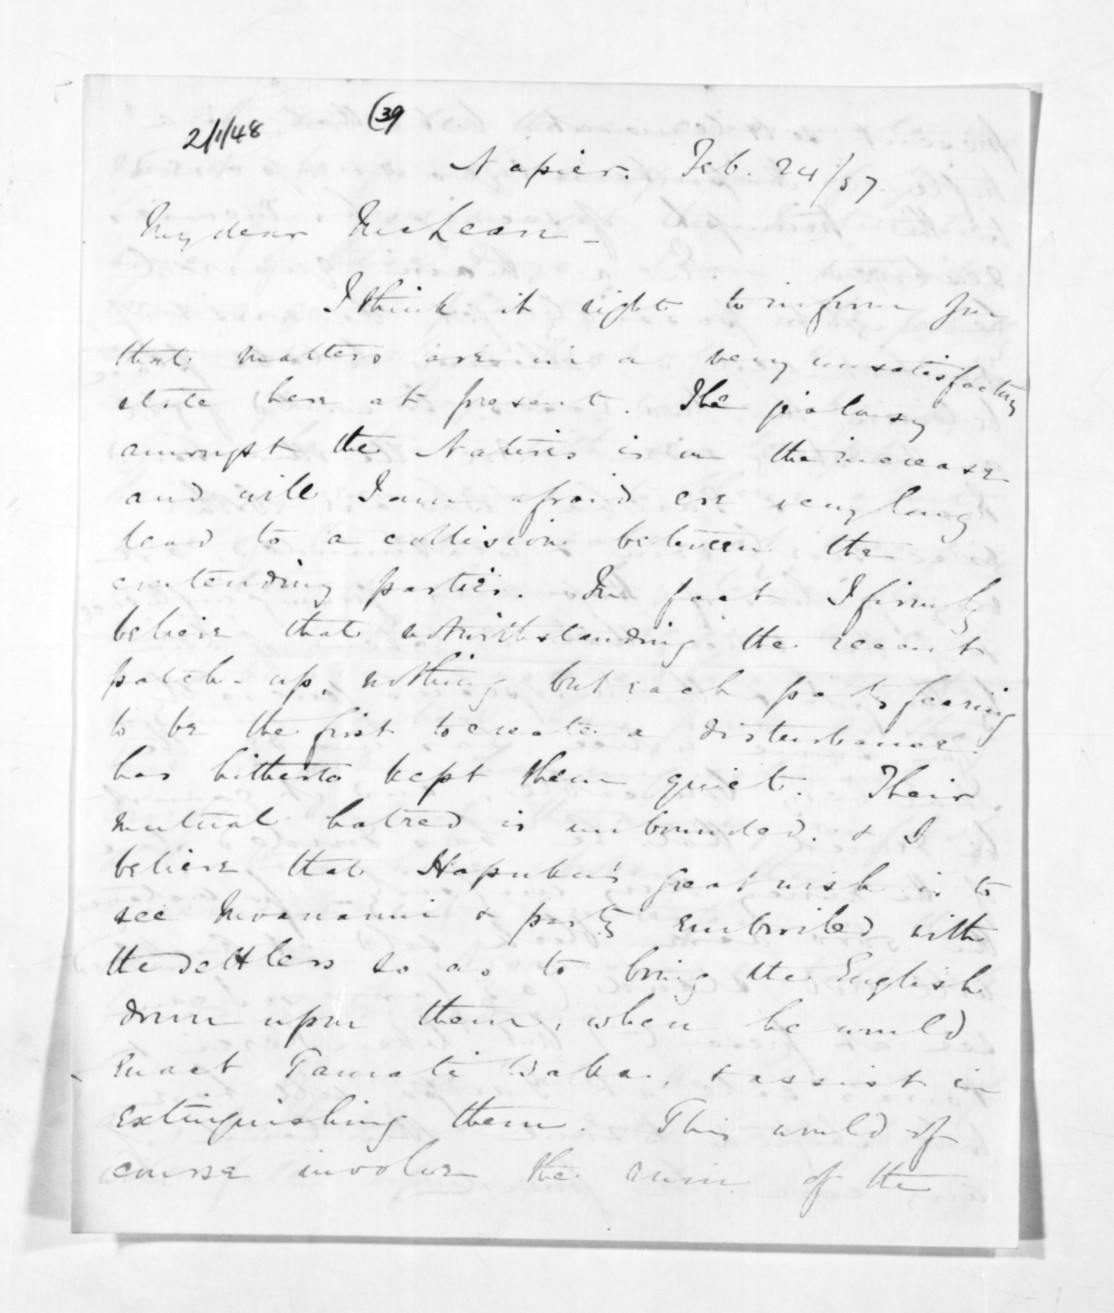 2/1/48
(39
Napier. Feb. 24/57.
My dear McLean -
I think it right to inform you
that matters are in a very unsatisfactory
state here at present. The jealousy
amongst the Natives is on the increase
and will I am afraid ere very long
lead to a collision between the
contending parties. In fact I firmly
believe that notwithstanding the recent
patch-up, nothing but each party fearing
to be the first to create a disturbance
has hitherto kept them quiet. Their
mutual hatred is unbounded, & I
believe that Hapuku's great wish is to
see Moananui & party embroiled with
the settlers so as to bring the English
down upon them, when he would
enact Tamati Waka, & assist in
extinguishing them. This would of
course involve the ruin of the